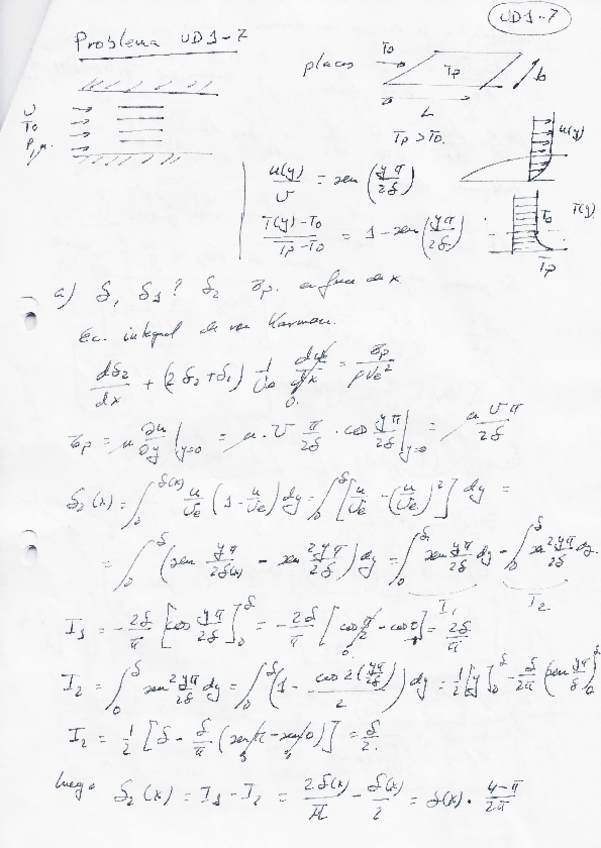 UD1-7
Problema UD1-7
placas To Tp b
L
U
To
ρ, μ
Tp > To.
u(y)
u(y)/U = sen (yπ/2δ)
(T(y)-To)/(Tp-To) = 1 - sen (yπ/2δ)
To T(y)
Tp
a) δ, δ1? δ2 τp. en func de x
Ec. integral de von Karman.
dδ2/dx + (2δ2+δ1) 1/Ue due/dx = τp/ρUe²
0.
τp = μ ∂u/∂y |y=0 = μ·U π/2δ · cos yπ/2δ |y=0 = μUπ/2δ
δ2(x) = ∫0^δ(x) u/Ue (1 - u/Ue) dy = ∫0^δ [u/Ue - (u/Ue)²] dy =
= ∫0^δ (sen yπ/2δ(x) - sen² yπ/2δ) dy = ∫0^δ sen yπ/2δ dy - ∫0^δ sen² yπ/2δ dy.
I1 I2
I1 = -2δ/π [cos yπ/2δ]0^δ = -2δ/π [cos π/2 - cos 0] = 2δ/π
I2 = ∫0^δ sen² yπ/2δ dy = ∫0^δ (1 - cos 2(yπ/2δ)) dy = 1/2 [y]0^δ - δ/2π (sen yπ/δ)0^δ
I2 = 1/2 [δ - δ/π (sen π - sen 0)] = δ/2.
luego δ2(x) = I1 - I2 = 2δ(x)/π - δ(x)/2 = δ(x) · (4-π)/2π